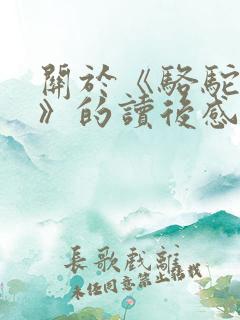 關於《駱駝
》的讀後感
長歌戲離
未任同意禁止搭載